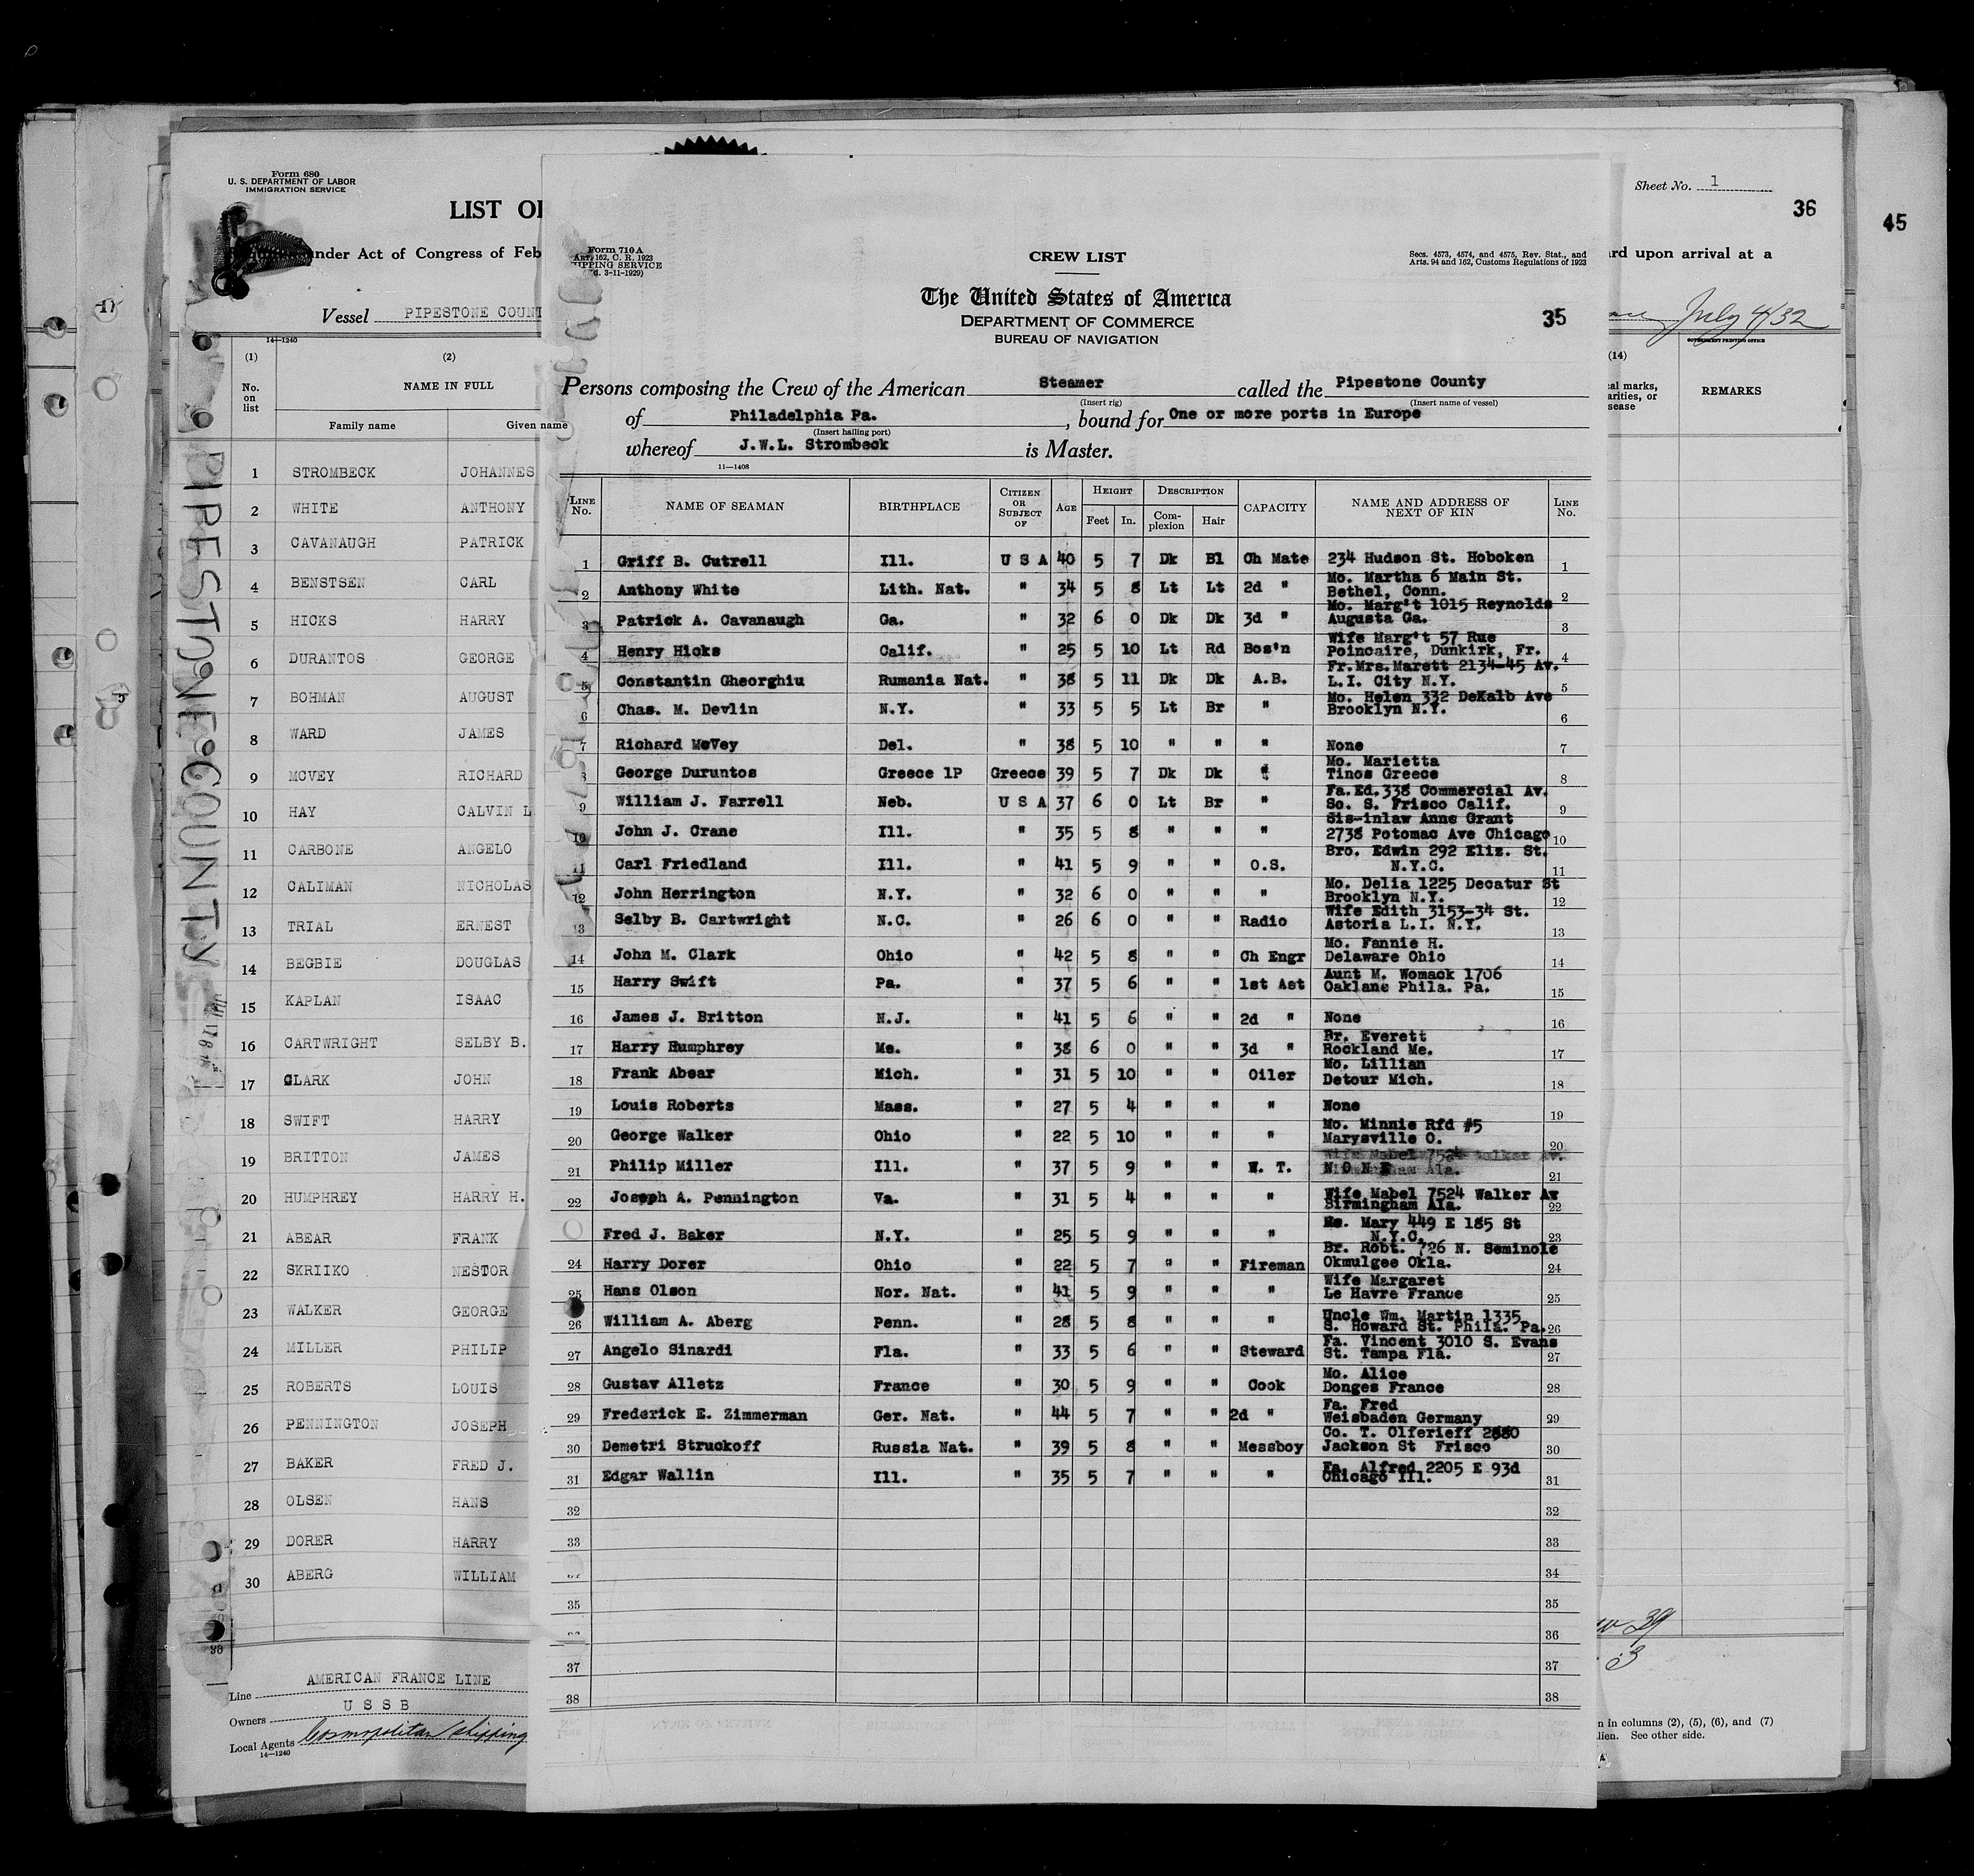 Form 680
U. S. DEPARTMENT OF LABOR
IMMIGRATION SERVICE
LIST OF
under Act of Congress of Feb
Vessel PIPESTONE COUNT
14—1240
(1) (2)
No. on list NAME IN FULL
Family name Given name
1 STROMBECK JOHANNES
2 WHITE ANTHONY
3 CAVANAUGH PATRICK
4 BENSTSEN CARL
5 HICKS HARRY
6 DURANTOS GEORGE
7 BOHMAN AUGUST
8 WARD JAMES
9 MCVEY RICHARD
10 HAY CALVIN L
11 CARBONE ANGELO
12 CALIMAN NICHOLAS
13 TRIAL ERNEST
14 BEGBIE DOUGLAS
15 KAPLAN ISAAC
16 CARTWRIGHT SELBY B.
17 CLARK JOHN
18 SWIFT HARRY
19 BRITTON JAMES
20 HUMPHREY HARRY H.
21 ABEAR FRANK
22 SKRIIKO NESTOR
23 WALKER GEORGE
24 MILLER PHILIP
25 ROBERTS LOUIS
26 PENNINGTON JOSEPH
27 BAKER FRED J.
28 OLSEN HANS
29 DORER HARRY
30 ABERG WILLIAM
Line AMERICAN FRANCE LINE
Owners U S S B
Local Agents Cosmopolitan Shipping
14—1240
PIPESTONE COUNTY
17
5
Form 710 A
Art. 162, C. R. 1923
SHIPPING SERVICE
(Ed. 3-11-1929)
CREW LIST
Secs. 4573, 4574, and 4575, Rev. Stat., and
Arts. 94 and 162, Customs Regulations of 1923
The United States of America
DEPARTMENT OF COMMERCE
BUREAU OF NAVIGATION
35
Persons composing the Crew of the American Steamer called the Pipestone County
(Insert rig) (Insert name of vessel)
of Philadelphia Pa., bound for One or more ports in Europe
(Insert hailing port)
whereof J.W.L. Strombeck is Master.
11—1408
LINE No. NAME OF SEAMAN BIRTHPLACE CITIZEN OR SUBJECT OF AGE HEIGHT Feet In. DESCRIPTION Complexion Hair CAPACITY NAME AND ADDRESS OF NEXT OF KIN LINE No.
1 Griff B. Cutrell Ill. U S A 40 5 7 Dk Bl Ch Mate 234 Hudson St. Hoboken 1
2 Anthony White Lith. Nat. " 34 5 8 Lt Lt 2d " Mo. Martha 6 Main St. Bethel, Conn. 2
3 Patrick A. Cavanaugh Ga. " 32 6 0 Dk Dk 3d " Mo. Marg't 1015 Reynolds Augusta Ga. 3
4 Henry Hicks Calif. " 25 5 10 Lt Rd Bos'n Wife Marg't 57 Rue Poincaire, Dunkirk, Fr. 4
5 Constantin Gheorghiu Rumania Nat. " 38 5 11 Dk Dk A.B. Fr.Mrs.Marett 2134-45 Av. L.I. City N.Y. 5
6 Chas. M. Devlin N.Y. " 33 5 5 Lt Br " Mo. Helen 332 DeKalb Ave Brooklyn N.Y. 6
7 Richard McVey Del. " 38 5 10 " " " None 7
8 George Duruntos Greece 1P Greece 39 5 7 Dk Dk " Mo. Marietta Tinos Greece 8
9 William J. Farrell Neb. U S A 37 6 0 Lt Br " Fa.Ed.338 Commercial Av. So. S. Frisco Calif. 9
10 John J. Crane Ill. " 35 5 8 " " " Sis-inlaw Anne Grant 2738 Potomac Ave Chicago 10
11 Carl Friedland Ill. " 41 5 9 " " O.S. Bro. Edwin 292 Eliz. St. N.Y.C. 11
12 John Herrington N.Y. " 32 6 0 " " " Mo. Delia 1225 Decatur St Brooklyn N.Y. 12
13 Selby B. Cartwright N.C. " 26 6 0 " " Radio Wife Edith 3153-34 St. Astoria L.I. N.Y. 13
14 John M. Clark Ohio " 42 5 8 " " Ch Engr Mo. Fannie H. Delaware Ohio 14
15 Harry Swift Pa. " 37 5 6 " " 1st Ast Aunt M. Womack 1706 Oaklane Phila. Pa. 15
16 James J. Britton N.J. " 41 5 6 " " 2d " None 16
17 Harry Humphrey Me. " 38 6 0 " " 3d " Br. Everett Rockland Me. 17
18 Frank Abear Mich. " 31 5 10 " " Oiler Mo. Lillian Detour Mich. 18
19 Louis Roberts Mass. " 27 5 4 " " " None 19
20 George Walker Ohio " 22 5 10 " " " Mo. Minnie Rfd #5 Marysville O. 20
21 Philip Miller Ill. " 37 5 9 " " W. T. N O N E 21
22 Joseph A. Pennington Va. " 31 5 4 " " " Wife Mabel 7524 Walker Av Birmingham Ala. 22
Fred J. Baker N.Y. " 25 5 9 " " " Mary 449 E 185 St N.Y.C. 23
24 Harry Dorer Ohio " 22 5 7 " " Fireman Br. Robt. 726 N. Seminole Okmulgee Okla. 24
25 Hans Olson Nor. Nat. " 41 5 9 " " " Wife Margaret Le Havre France 25
26 William A. Aberg Penn. " 28 5 8 " " " Uncle Wm. Martin 1335 S. Howard St. Phila. Pa. 26
27 Angelo Sinardi Fla. " 33 5 6 " " Steward Fa. Vincent 3010 S. Evans St. Tampa Fla. 27
28 Gustav Alletz France " 30 5 9 " " Cook Mo. Alice Donges France 28
29 Frederick E. Zimmerman Ger. Nat. " 44 5 7 " " 2d " Fa. Fred Weisbaden Germany 29
30 Demetri Struckoff Russia Nat. " 39 5 8 " " Messboy Co. T. Olferieff Jackson St Frisco 30
31 Edgar Wallin Ill. " 35 5 7 " " " Fa. Alfred 2205 E 93d Chicago Ill. 31
32 32
33 33
34
35 35
36
37 37
38 38
Sheet No. 1
36
45
rd upon arrival at a
July 4/32
GOVERNMENT PRINTING OFFICE
(14)
al marks,
arities, or
sease
REMARKS
39
3
n in columns (2), (5), (6), and (7)
lien. See other side.